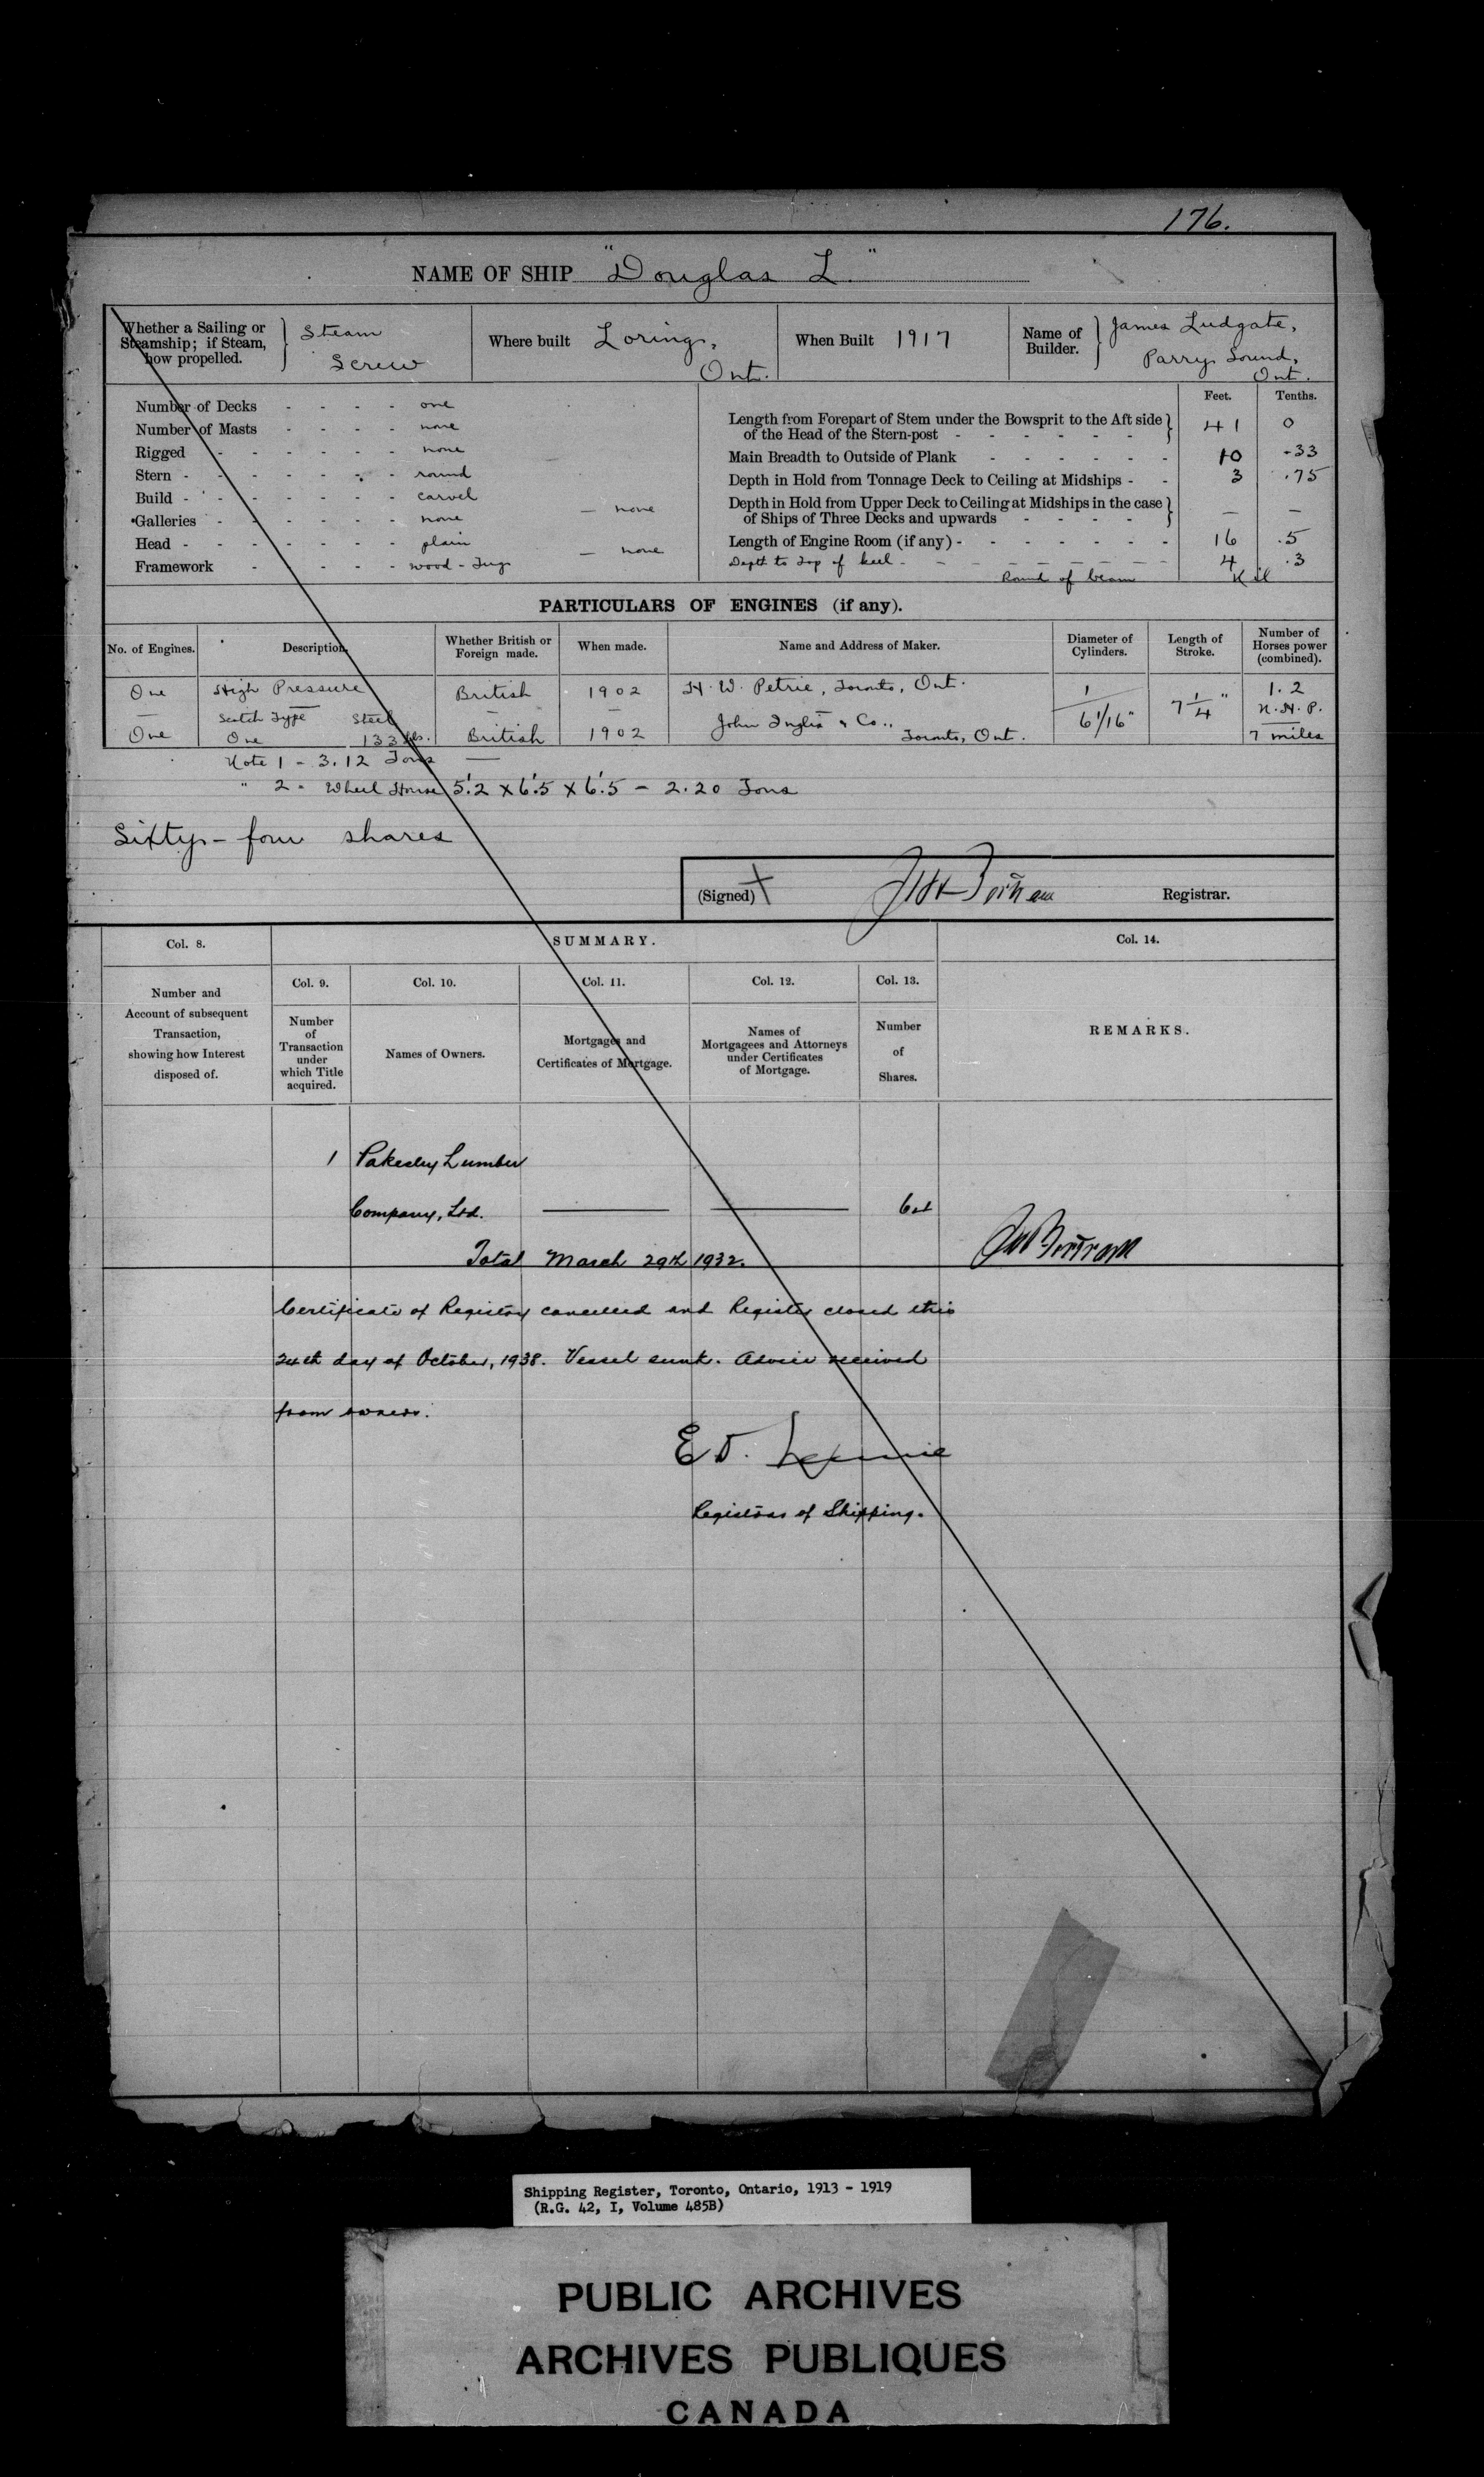 176.
NAME OF SHIP "Douglas L."
Whether a Sailing or Steamship; if Steam, how propelled. } Steam Screw
Where built Loring, Ont.
When Built 1917
Name of Builder. } James Ludgate, Parry Sound, Ont.
Number of Decks - - - - one
Number of Masts - - - - none
Rigged - - - - - - none
Stern - - - - - - - round
Build - - - - - - - carvel
Galleries - - - - - - none — none
Head - - - - - - - plain — none
Framework - - - - - wood - Tug
Feet. Tenths.
Length from Forepart of Stem under the Bowsprit to the Aft side
of the Head of the Stern-post - - - - - - } 41 0
Main Breadth to Outside of Plank - - - - - - 10 .33
Depth in Hold from Tonnage Deck to Ceiling at Midships - - 3 .75
Depth in Hold from Upper Deck to Ceiling at Midships in the case
of Ships of Three Decks and upwards - - - - } — —
Length of Engine Room (if any) - - - - - - - 16 .5
Depth to Top of keel - - - - - - - 4 .3
Round of beam Nil
PARTICULARS OF ENGINES (if any).
No. of Engines. Description. Whether British or Foreign made. When made. Name and Address of Maker. Diameter of Cylinders. Length of Stroke. Number of Horses power (combined).
One High Pressure British 1902 H. W. Petrie, Toronto, Ont. 1 7 1/4" 1.2
— Scotch Type Steel — — 6 1/16" N.H.P.
One One 133 lbs. British 1902 John Inglis & Co., Toronto, Ont. 7 miles
Note 1 - 3.12 Tons —
" 2 - Wheel House 5'.2 x 6'.5 x 6'.5 - 2.20 Tons
Sixty-four shares
(Signed) Registrar.
Col. 8. SUMMARY. Col. 14.
Number and Account of subsequent Transaction, showing how Interest disposed of.
Col. 9. Number of Transaction under which Title acquired.
Col. 10. Names of Owners.
Col. 11. Mortgages and Certificates of Mortgage.
Col. 12. Names of Mortgagees and Attorneys under Certificates of Mortgage.
Col. 13. Number of Shares.
REMARKS.
1 Pakesley Lumber
Company, Ltd. 64
Total March 29th 1932.
Certificate of Registry cancelled and Registry closed this
24th day of October, 1938. Vessel sunk. Advice received
from owners.
Registrar of Shipping.
Shipping Register, Toronto, Ontario, 1913 - 1919
(R.G. 42, I, Volume 485B)
PUBLIC ARCHIVES
ARCHIVES PUBLIQUES
CANADA